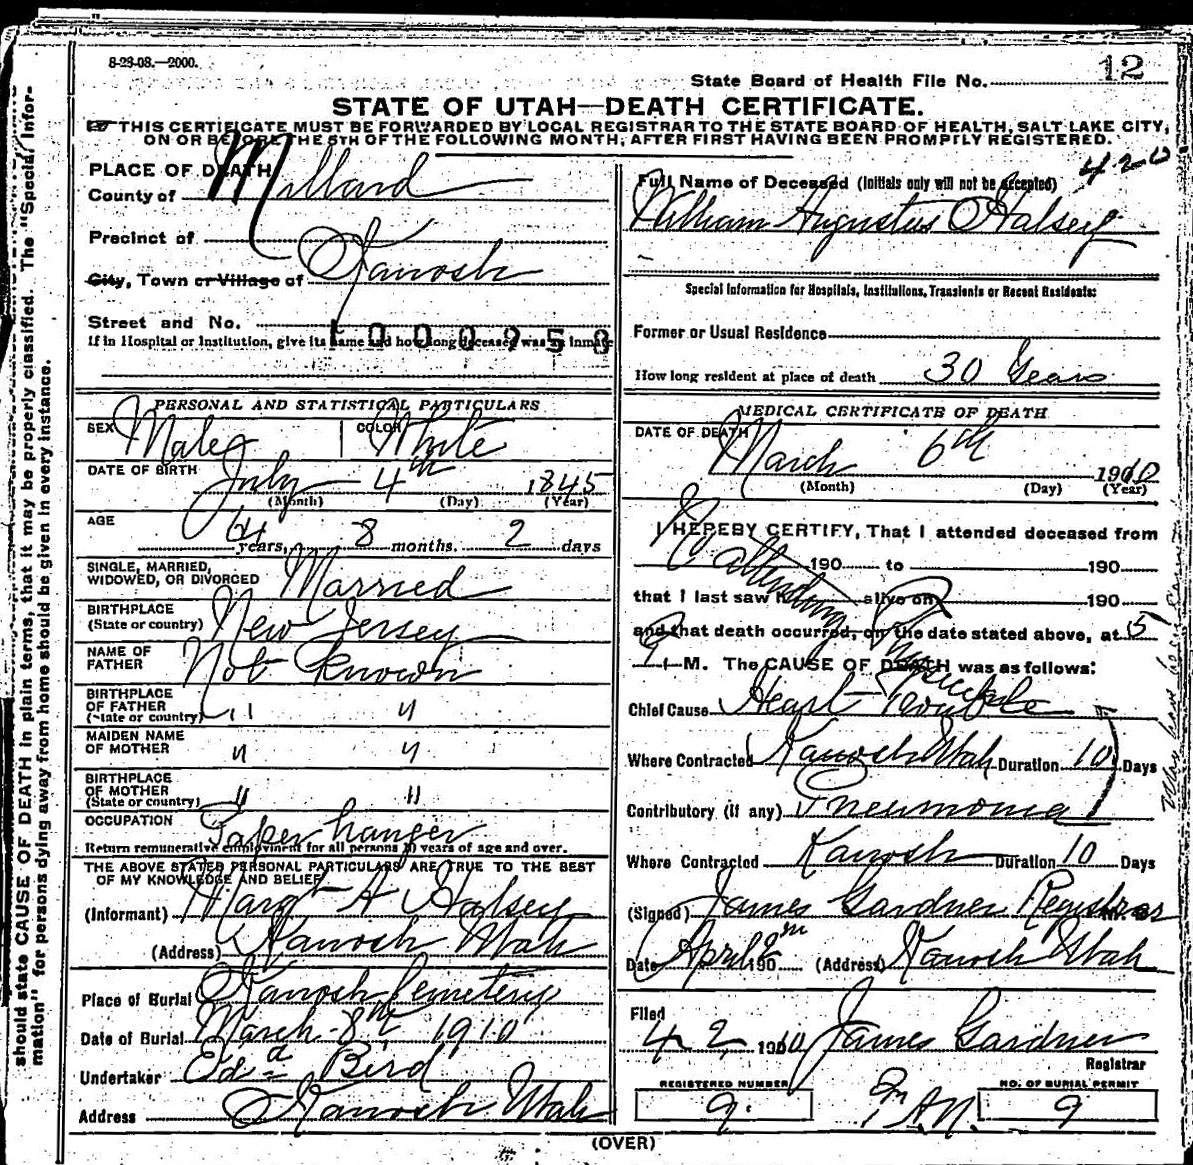 8-23-08.—2000.
State Board of Health File No. 12
STATE OF UTAH—DEATH CERTIFICATE.
THIS CERTIFICATE MUST BE FORWARDED BY LOCAL REGISTRAR TO THE STATE BOARD OF HEALTH, SALT LAKE CITY,
ON OR BEFORE THE 5TH OF THE FOLLOWING MONTH, AFTER FIRST HAVING BEEN PROMPTLY REGISTERED.
PLACE OF DEATH
County of Millard
Precinct of
City, Town or Village of Kanosh
Street and No.
1000958
If in Hospital or Institution, give its name and how long deceased was an inmate
PERSONAL AND STATISTICAL PARTICULARS
SEX Male COLOR White
DATE OF BIRTH July 4th 1845
(Month) (Day) (Year)
AGE 64 years, 8 months. 2 days
SINGLE, MARRIED,
WIDOWED, OR DIVORCED Married
BIRTHPLACE
(State or country) New Jersey
NAME OF
FATHER Not Known
BIRTHPLACE
OF FATHER
(State or country) " "
MAIDEN NAME
OF MOTHER " "
BIRTHPLACE
OF MOTHER
(State or country) " "
OCCUPATION Paper hanger
Return remunerative employment for all persons 10 years of age and over.
THE ABOVE STATED PERSONAL PARTICULARS ARE TRUE TO THE BEST
OF MY KNOWLEDGE AND BELIEF
(Informant) Margt A Halsey
(Address) Kanosh Utah
Place of Burial Kanosh Cemetery
Date of Burial March 8th 1910
Undertaker Edd Bird
Address Kanosh Utah
420
Full Name of Deceased (Initials only will not be accepted)
William Augustus Halsey
Special Information for Hospitals, Institutions, Transients or Recent Residents:
Former or Usual Residence
How long resident at place of death 30 Years
MEDICAL CERTIFICATE OF DEATH
DATE OF DEATH
March 6th 1910
(Month) (Day) (Year)
I HEREBY CERTIFY, That I attended deceased from
190 to 190
that I last saw h alive on 190
and that death occurred, on the date stated above, at 5
M. The CAUSE OF DEATH was as follows:
No attending Physician
Chief Cause Heart Trouble
Where Contracted Kanosh Utah Duration 10 Days
Contributory (if any) Pneumonia
Where Contracted Kanosh Duration 10 Days
(Signed) James Gardner Registrar
Date April 2nd 190 (Address) Kanosh Utah
Filed
4 2 1910 James Gardner
Registrar
REGISTERED NUMBER
9
NO. OF BURIAL PERMIT
9
(OVER)
should state CAUSE OF DEATH in plain terms, that it may be properly classified. The "Special Infor-
mation" for persons dying away from home should be given in every instance.